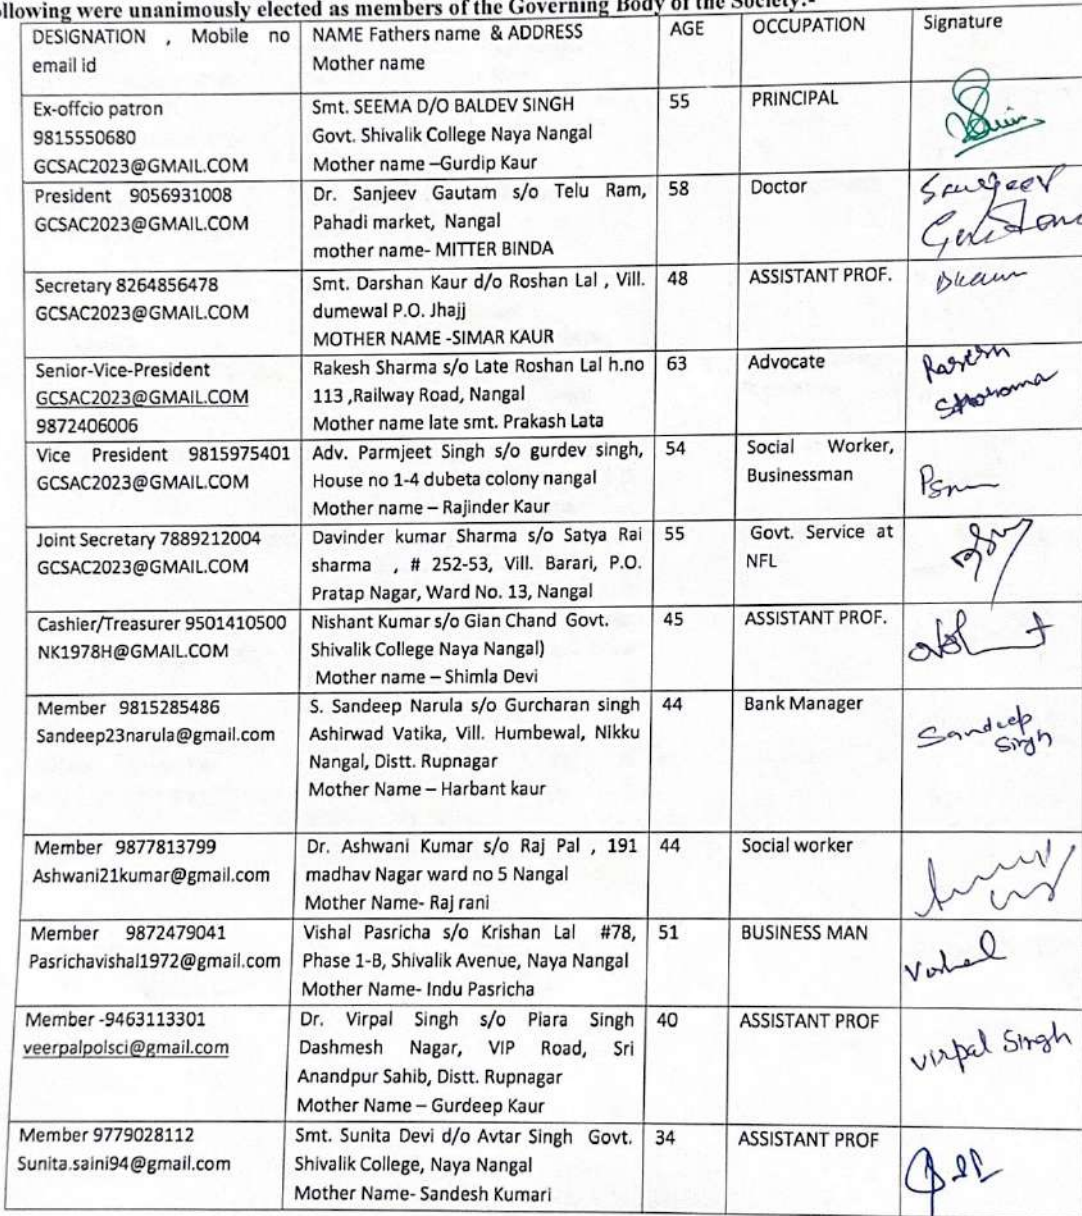 ollowing were unanimously elected as members of the Governing Body of the Society:-
DESIGNATION , Mobile no
email id
NAME Fathers name & ADDRESS
Mother name
AGE
OCCUPATION
Signature
Ex-offcio patron
9815550680
GCSAC2023@GMAIL.COM
Smt. SEEMA D/O BALDEV SINGH
Govt. Shivalik College Naya Nangal
Mother name –Gurdip Kaur
55
PRINCIPAL
President 9056931008
GCSAC2023@GMAIL.COM
Dr. Sanjeev Gautam s/o Telu Ram,
Pahadi market, Nangal
mother name- MITTER BINDA
58
Doctor
Sanjeev
Secretary 8264856478
GCSAC2023@GMAIL.COM
Smt. Darshan Kaur d/o Roshan Lal , Vill.
dumewal P.O. Jhajj
MOTHER NAME -SIMAR KAUR
48
ASSISTANT PROF.
Senior-Vice-President
GCSAC2023@GMAIL.COM
9872406006
Rakesh Sharma s/o Late Roshan Lal h.no
113 ,Railway Road, Nangal
Mother name late smt. Prakash Lata
63
Advocate
Vice President 9815975401
GCSAC2023@GMAIL.COM
Adv. Parmjeet Singh s/o gurdev singh,
House no 1-4 dubeta colony nangal
Mother name – Rajinder Kaur
54
Social Worker,
Businessman
Joint Secretary 7889212004
GCSAC2023@GMAIL.COM
Davinder kumar Sharma s/o Satya Rai
sharma , # 252-53, Vill. Barari, P.O.
Pratap Nagar, Ward No. 13, Nangal
55
Govt. Service at
NFL
Cashier/Treasurer 9501410500
NK1978H@GMAIL.COM
Nishant Kumar s/o Gian Chand Govt.
Shivalik College Naya Nangal)
Mother name – Shimla Devi
45
ASSISTANT PROF.
Member 9815285486
Sandeep23narula@gmail.com
S. Sandeep Narula s/o Gurcharan singh
Ashirwad Vatika, Vill. Humbewal, NIkku
Nangal, Distt. Rupnagar
Mother Name – Harbant kaur
44
Bank Manager
Sandeep
Singh
Member 9877813799
Ashwani21kumar@gmail.com
Dr. Ashwani Kumar s/o Raj Pal , 191
madhav Nagar ward no 5 Nangal
Mother Name- Raj rani
44
Social worker
Member 9872479041
Pasrichavishal1972@gmail.com
Vishal Pasricha s/o Krishan Lal #78,
Phase 1-B, Shivalik Avenue, Naya Nangal
Mother Name- Indu Pasricha
51
BUSINESS MAN
Vishal
Member -9463113301
veerpalpolsci@gmail.com
Dr. Virpal Singh s/o Piara Singh
Dashmesh Nagar, VIP Road, Sri
Anandpur Sahib, Distt. Rupnagar
Mother Name – Gurdeep Kaur
40
ASSISTANT PROF
Virpal Singh
Member 9779028112
Sunita.saini94@gmail.com
Smt. Sunita Devi d/o Avtar Singh Govt.
Shivalik College, Naya Nangal
Mother Name- Sandesh Kumari
34
ASSISTANT PROF